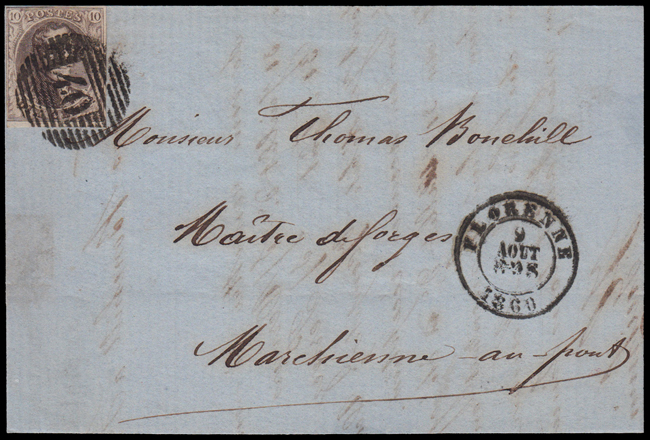 10 POSTES 10
Monsieur Thomas Bonehill
Maître de forges
Marchienne-au-pont
FLORENNE
9
AOUT
1860